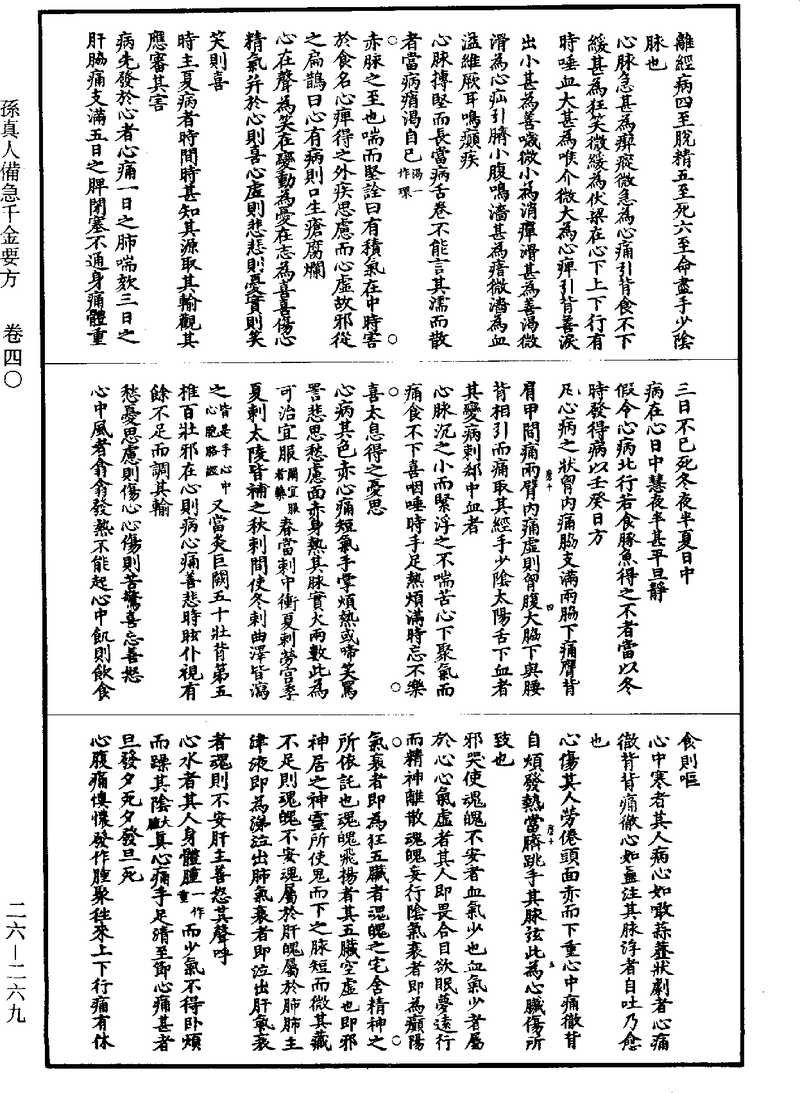 離經病四至脫精五至死六至命盡手少陰
脉也
心脉急甚為瘈瘲微急為心痛引背食不下
緩甚為狂笑微緩為伏梁在心下上下行有
時唾血大甚為喉介微大為心痺引背善淚
出小甚為善噦微小為消癉滑甚為善渴微
滑為心疝引臍小腹鳴濇甚為瘖微濇為血
溢維厥耳鳴癲疾
心脉搏堅而長當病舌卷不能言其濡而散
者當病痟渴自已渴一作環
赤脉之至也喘而堅詮曰有積氣在中時害
於食名心痺得之外疾思慮而心虛故邪從
之扁鵲曰心有病則口生瘡腐爛
心在聲為笑在變動為憂在志為喜喜傷心
精氣并於心則喜心虛則悲悲則憂實則笑
笑則喜
時主夏病者時間時甚知其源取其輸觀其
應審其害
病先發於心者心痛一日之肺喘欬三日之
肝脇痛支滿五日之脾閉塞不通身痛體重
三日不已死冬夜半夏日中
病在心日中慧夜半甚平旦靜
假令心病北行若食豚魚得之不者當以冬
時發得病以壬癸日方
凡心病之狀胷内痛脇支滿兩脇下痛膺背
肩甲間痛兩臂内痛虛則胷腹大脇下與腰
背相引而痛取其經手少陰太陽舌下血者
其變病刺郄中血者
心脉沉之小而緊浮之不喘苦心下聚氣而
痛食不下喜咽唾時手足熱煩滿時忘不樂
喜太息得之憂思
心病其色赤心痛短氣手掌煩熱或啼笑罵
詈悲思愁慮面赤身熱其脉實大而數此為
可治宜服春當刺中衝夏刺勞宮季
夏刺太陵皆補之秋刺間使冬刺曲澤皆瀉
之皆是手心中心胞胳經又當灸巨闕五十壯背第五
椎百壯邪在心則病心痛善悲時眩仆視有
餘不足而調其輸
愁憂思慮則傷心心傷則苦驚喜忘善怒
心中風者翕翕發熱不能起心中飢則飲食
食則嘔
心中寒者其人病心如噉蒜虀狀劇者心痛
徹背背痛徹心如蠱注其脉浮者自吐乃愈
也
心傷其人勞倦頭面赤而下重心中痛徹背
自煩發熱當臍跳手其脉弦此為心臟傷所
致也
邪哭使魂魄不安者血氣少也血氣少者屬
於心心氣虛者其人即畏合目欲眠夢遠行
而精神離散魂魄妄行陰氣衰者即為癲陽
氣衰者即為狂五臟者魂魄之宅舍精神之
所依託也魂魄飛揚者其五臟空虛也即邪
神居之神靈所使鬼而下之脉短而微其藏
不足則魂魄不安魂屬於肝魄屬於肺肺主
津液即為涕泣出肺氣衰者即泣出肝氣衰
者魂則不安肝主善怒其聲呼
心水者其人身體腫一作重而少氣不得臥煩
而躁其陰大腫真心痛手足清至節心痛甚者
旦發夕死夕發旦死
心腹痛懊憹發作腫聚往來上下行痛有休
孫真人備急千金要方　卷四〇
二六—二六九